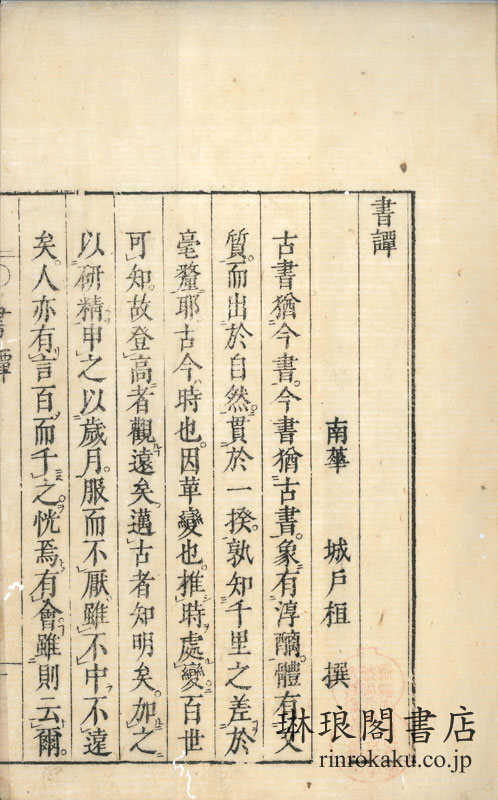 書譚
南華 城戸桓 撰
古書猶今書。今書猶古書。象有淳醨。體有文
質。而出於自然。貫於一揆。孰知千里之差於
毫釐耶。古今時也。因革變也。推時處變。百世
可知。故登高者觀遠矣。邁古者知明矣。加之
以研精。申之以歲月。服而不厭。雖不中不遠
矣。人亦有言。百而千之。恍焉有會。雖則云爾。
書譚
琳琅閣書店
rinrokaku.co.jp